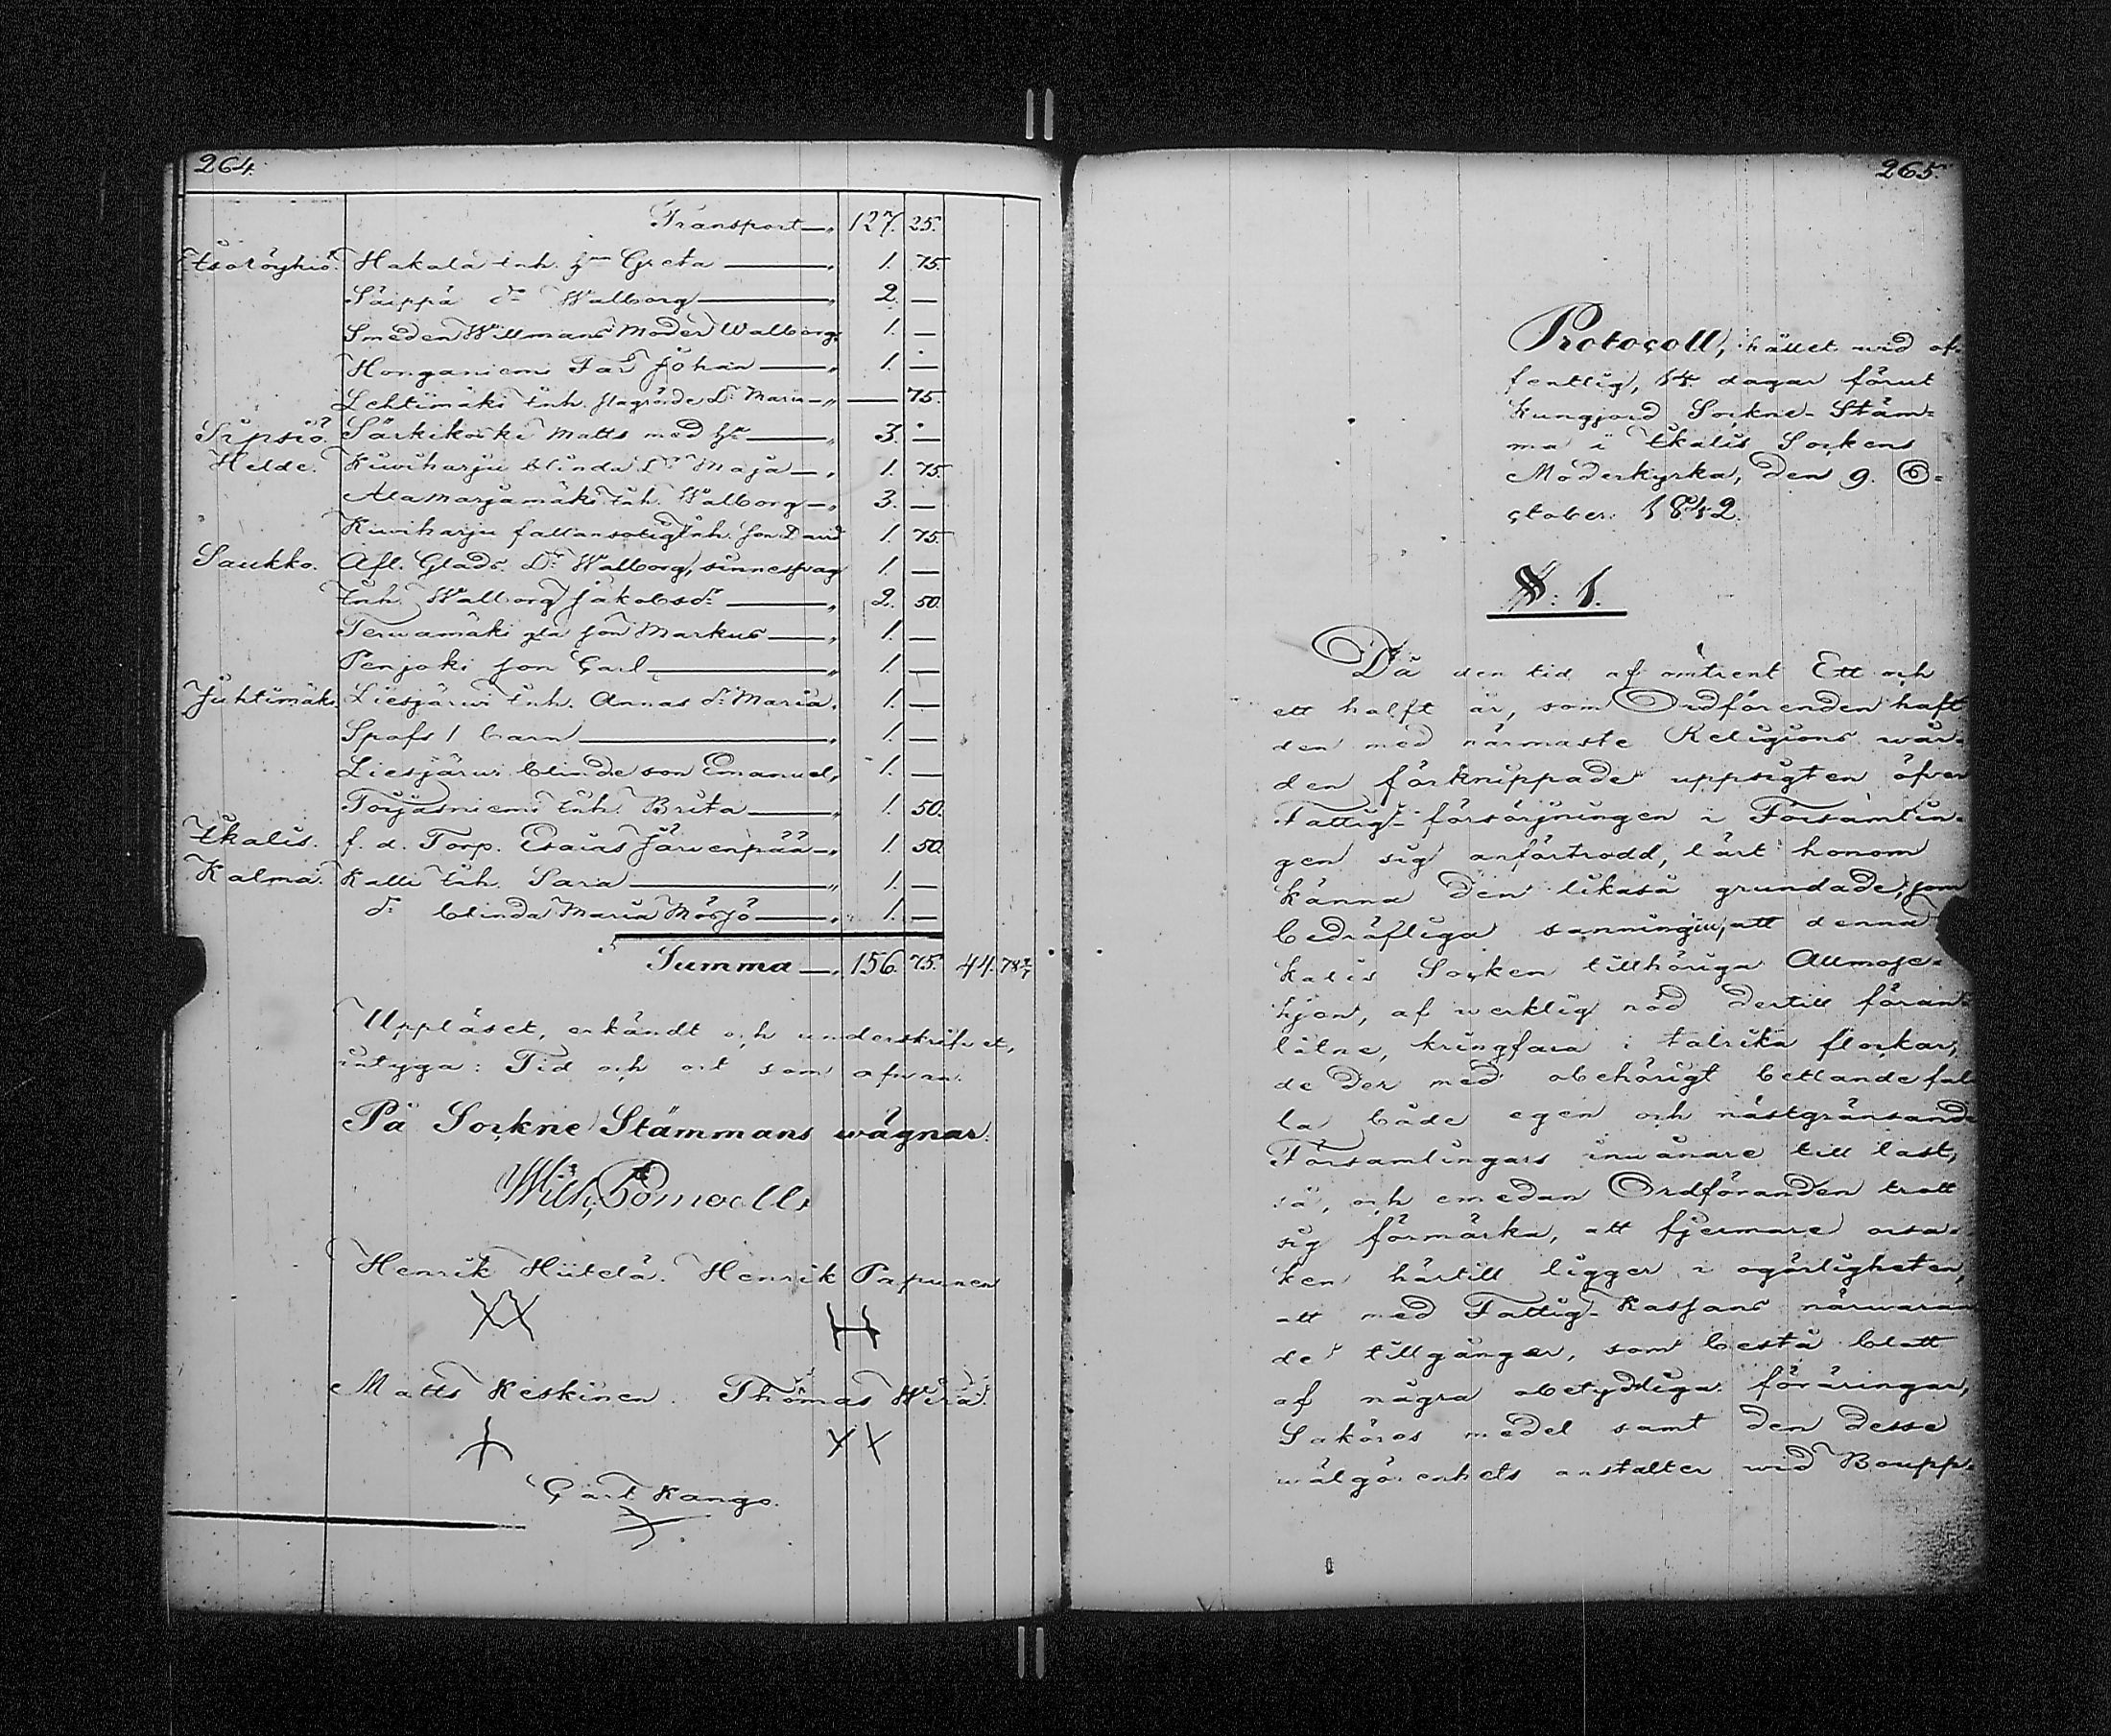 264.
Transport — 127. 25.
Hakala Inh. Hu Greta — 1. 75.
Säippä d:o Walborg — 2. —
Smeden Willmans Moder Walborg 1. —
Honganiemi Far Johan — 1. —
Lehtimäki Inh. D:r Maria — 75.
Sipsiö. Särkikoski Matts med Hu — 3. —
Helde. Kiwiharju blinda D:r Maja — 1. 75.
Alamarjamäki Inh. Walborg — 3. —
Kiwiharju fallansotig Inh. Son David 1. 75.
Saukko. Afl. Glads D:r Walborg, sinnesswag 1. —
Inh. Walborg Jakobsd:r — 2. 50.
Terwamäki Son Markus — 1. —
Penjoki Son Carl — 1. —
Juhtimäki Liesjärwi Inh. Annas d:r Maria. 1. —
Spofs 1 barn — 1. —
Liesjärwi blinde son Emanuel, 1. —
Inh. Brita — 1. 50.
Ikalis. f. d. Torp. Esaias Järwenpää — 1. 50.
Kalma. Kalli Inh. Sara — 1. —
d:o blinda Maria Mörsjö — 1. —
Summa — 156. 75. 44. 78 2/7
Uppläset, erkändt och underskrifvet,
intyga: Tid och ort som ofwan.
På Sockne Stämmans wägnar.
Wilh.
Henrik Hiitelä. Henrik Papunen
Matts Keskinen. Thomas Wirä.
Carl Kango.
265.
Protocoll, hållet wid of-
fentlig, 14 dagar förut
kungjord Sockne-Stäm-
ma i Ikalis Sockens
Moderkyrka, den 9. O-
ctober 1842.
§: 1.
Då den tid af omtrent Ett och
ett halft år, som Ordförenden haft
den med närmaste Religions wår-
den förknippade uppsigten öfver
Fattig-försörjningen i Församlin-
gen sig anförtrodd, lärt honom
känna den likaså grundade, som
bedröfliga sanningen, att denna
kalis Socken tillhöriga Allmose-
hjon, af werklig nöd dertill föran-
låtne, kringfara i talrika flockar,
de der med obehörigt bettlande fal-
la både egen och nästgränsande
Församlingars inwånare till last,
så, och emedan Ordföranden trott
sig förmärka, att fjermare orsa-
ken härtill ligger i ogörligheten,
att med Fattig-Kassans närwaran-
de tillgångar, som bestå blott
af några obetydliga föräringar,
Saköres medel samt den desse
wälgörenhets anstalter wid Boupp-